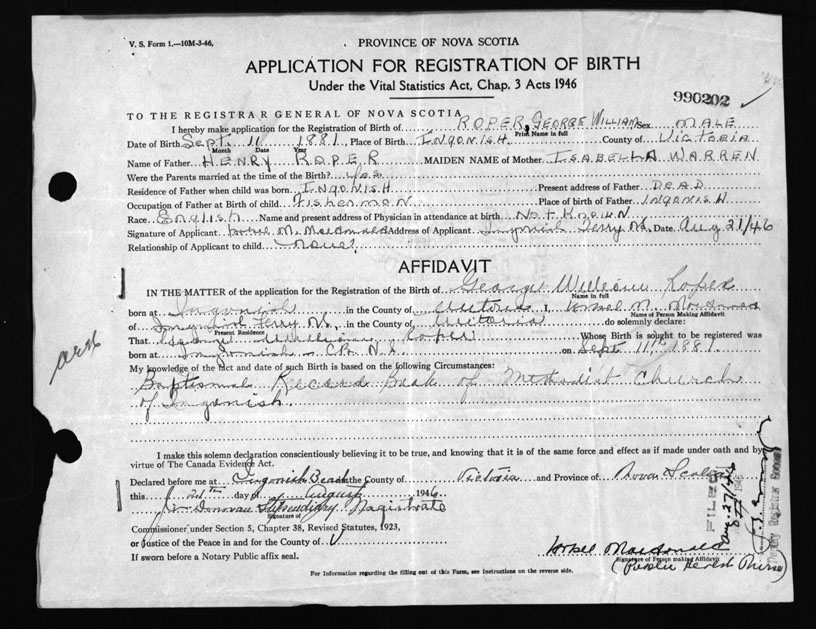 V. S. Form 1.—10M-3-46,
PROVINCE OF NOVA SCOTIA
APPLICATION FOR REGISTRATION OF BIRTH
Under the Vital Statistics Act, Chap. 3 Acts 1946
990202
TO THE REGISTRAR GENERAL OF NOVA SCOTIA
I hereby make application for the Registration of Birth of ROPER, GEORGE WILLIAM Sex MALE
Print Name in full
Date of Birth Sept. 11 1881 Place of Birth INGONISH County of Victoria
Month Date Year
Name of Father HENRY ROPER MAIDEN NAME of Mother ISABELLA WARREN
Were the Parents married at the time of the Birth? yes
Residence of Father when child was born INGONISH Present address of Father DEAD
Occupation of Father at Birth of child Fisherman Place of birth of Father INGONISH
Race English Name and present address of Physician in attendance at birth Not Known
Signature of Applicant M. MacDonald Address of Applicant Ingonish Ferry N.S. Date Aug 21/46
Relationship of Applicant to child None
AFFIDAVIT
IN THE MATTER of the application for the Registration of the Birth of George William Roper
Name in full
born at Ingonish in the County of Victoria I, M. MacDonald
Name of Person Making Affidavit
of Ingonish Ferry N.S. in the County of Victoria do solemnly declare:
Present Residence
That George William Roper Whose Birth is sought to be registered was
born at Ingonish C.B. N.S. on Sept 11th 1881.
My knowledge of the fact and date of such Birth is based on the following Circumstances:
Baptismal Record Book of Methodist Church
of Ingonish.
I make this solemn declaration conscientiously believing it to be true, and knowing that it is of the same force and effect as if made under oath and by
virtue of The Canada Evidence Act.
Declared before me at Ingonish Beach the County of Victoria and Province of Nova Scotia
this day of August 1946
Donovan Stipendiary Magistrate
Signature of
Commissioner under Section 5, Chapter 38, Revised Statutes, 1923,
or Justice of the Peace in and for the County of
If sworn before a Notary Public affix seal.
MacDonald
Signature of Person making Affidavit
(Public Health Nurse)
For Information regarding the filling out of this Form, see Instructions on the reverse side.
FILED
Deputy Registrar General